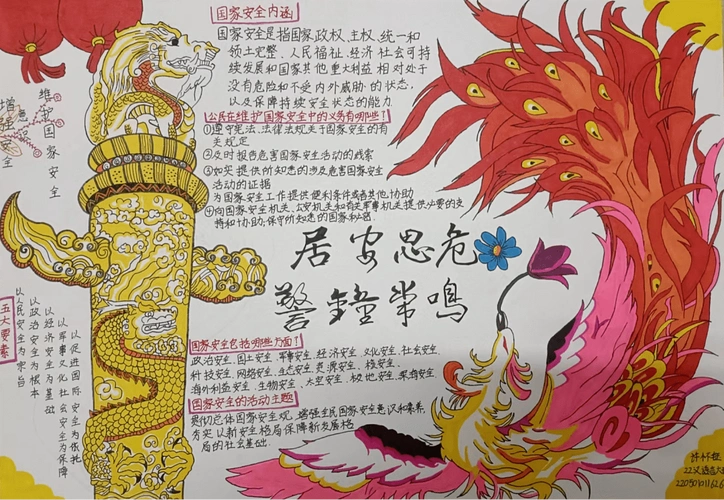 国家安全内涵
国家安全是指国家政权、主权、统一和
领土完整、人民福祉、经济社会可持
续发展和国家其他重大利益相对处于
没有危险和不受内外威胁的状态,
以及保障持续安全状态的能力
公民在维护国家安全中的义务有哪些?
①遵守宪法、法律法规关于国家安全的有
关规定
②及时报告危害国家安全活动的线索
③如实提供所知悉的涉及危害国家安全
活动的证据
为国家安全工作提供便利条件或者其他协助
④向国家安全机关、公安机关和有关军事机关提供必要的支
持和协助、保守所知悉的国家秘密.
维护国家安全
增强安全
意识
居安思危
警钟常鸣
五大要素
以人民安全为宗旨
以政治安全为根本
以经济安全为基础
以军事文化社会安全为保障
以促进国际安全为依托
国家安全包括哪些方面?
政治安全、国土安全、军事安全、经济安全、文化安全、社会安全
科技安全、网络安全、生态安全、资源安全、核安全、
海外利益安全、生物安全、太空安全、极地安全、深海安全
国家安全的活动主题
贯彻总体国家安全观，增强全民国家安全意识和素养，
夯实以新安全格局保障新发展格
局的社会基础.